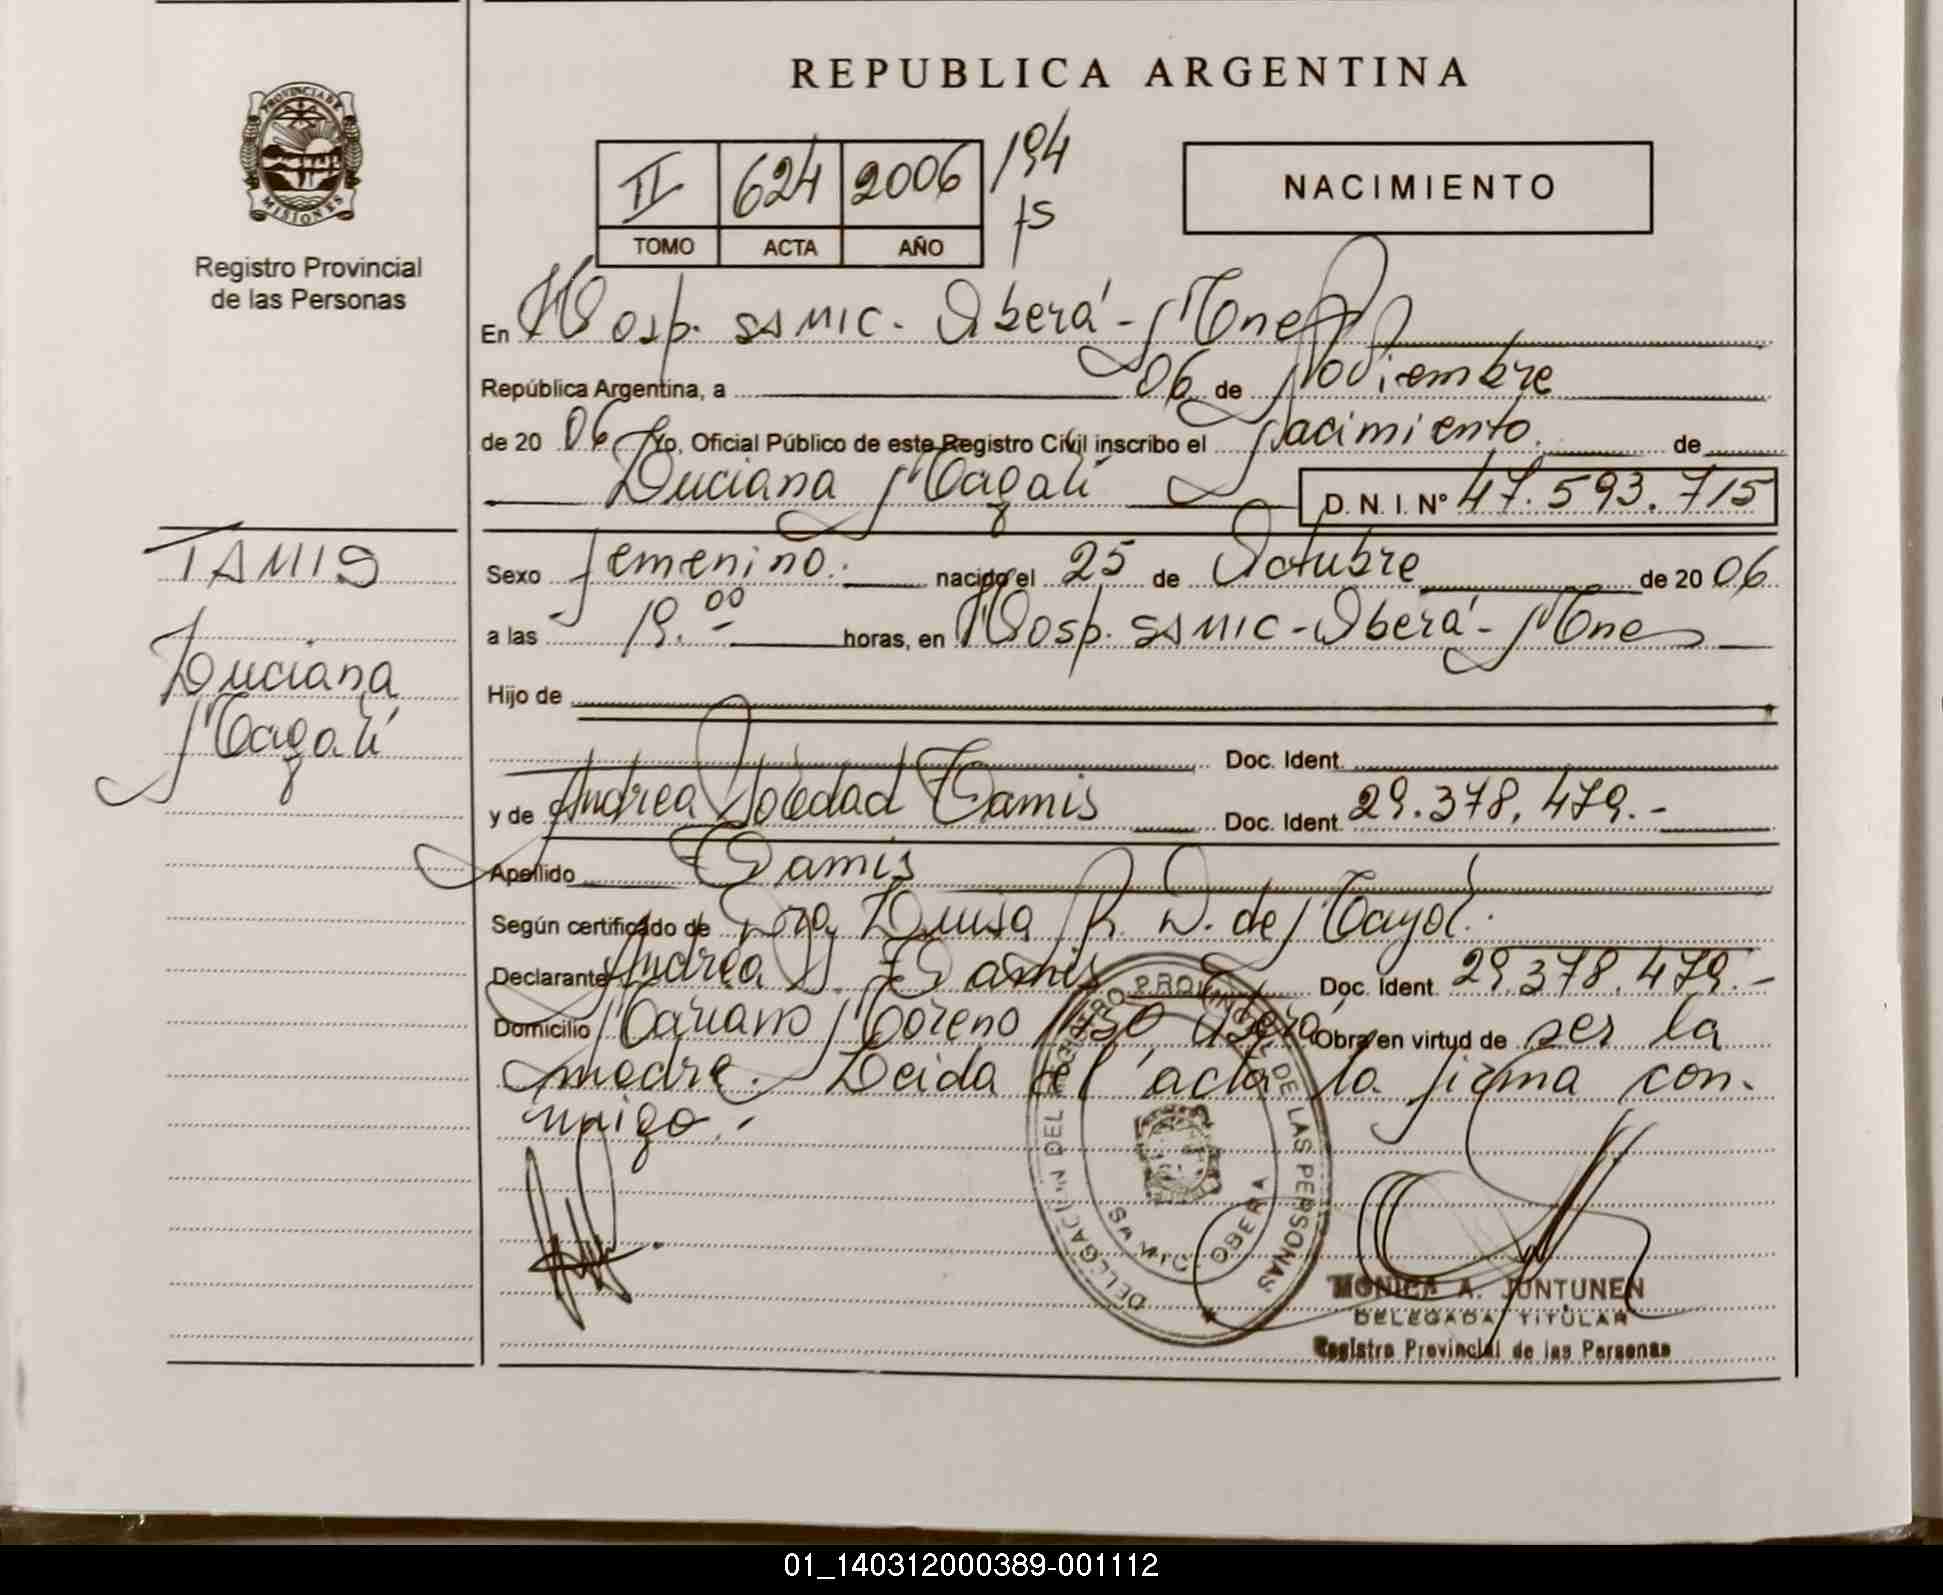 REPUBLICA ARGENTINA
PROVINCIA DE MISIONES
Registro Provincial
de las Personas
II 624 2006 194
TOMO ACTA AÑO fs
NACIMIENTO
En Hosp. SAMIC - Oberá - Mnes
República Argentina, a 06 de Noviembre
de 20 06 Yo, Oficial Público de este Registro Civil inscribo el Nacimiento. de
Luciana Magalí D. N. I. Nº 47.593.715
TAMIS
Luciana
Magalí
Sexo femenino. nacido el 25 de Octubre de 20 06
a las 19.00 horas, en Hosp. SAMIC - Oberá - Mnes
Hijo de
Doc. Ident.
y de Andrea Soledad Tamis Doc. Ident. 29.378.479.-
Apellido Tamis
Según certificado de Dra. Luisa R. D. de Mayol.
Declarante Andrea S. Tamis Doc. Ident. 29.378.479.-
Domicilio Mariano Moreno Oberá Obra en virtud de ser la
madre. Leida el acta la firma con-
migo.-
DELEGACION DEL REGISTRO PROVINCIAL DE LAS PERSONAS
SAMIC OBERA
MONICA A. JUNTUNEN
DELEGADA TITULAR
Registro Provincial de las Personas
01_140312000389-001112